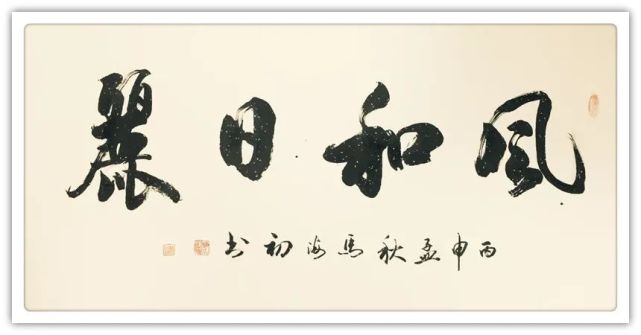 風和日麗
丙申孟秋馬海初书